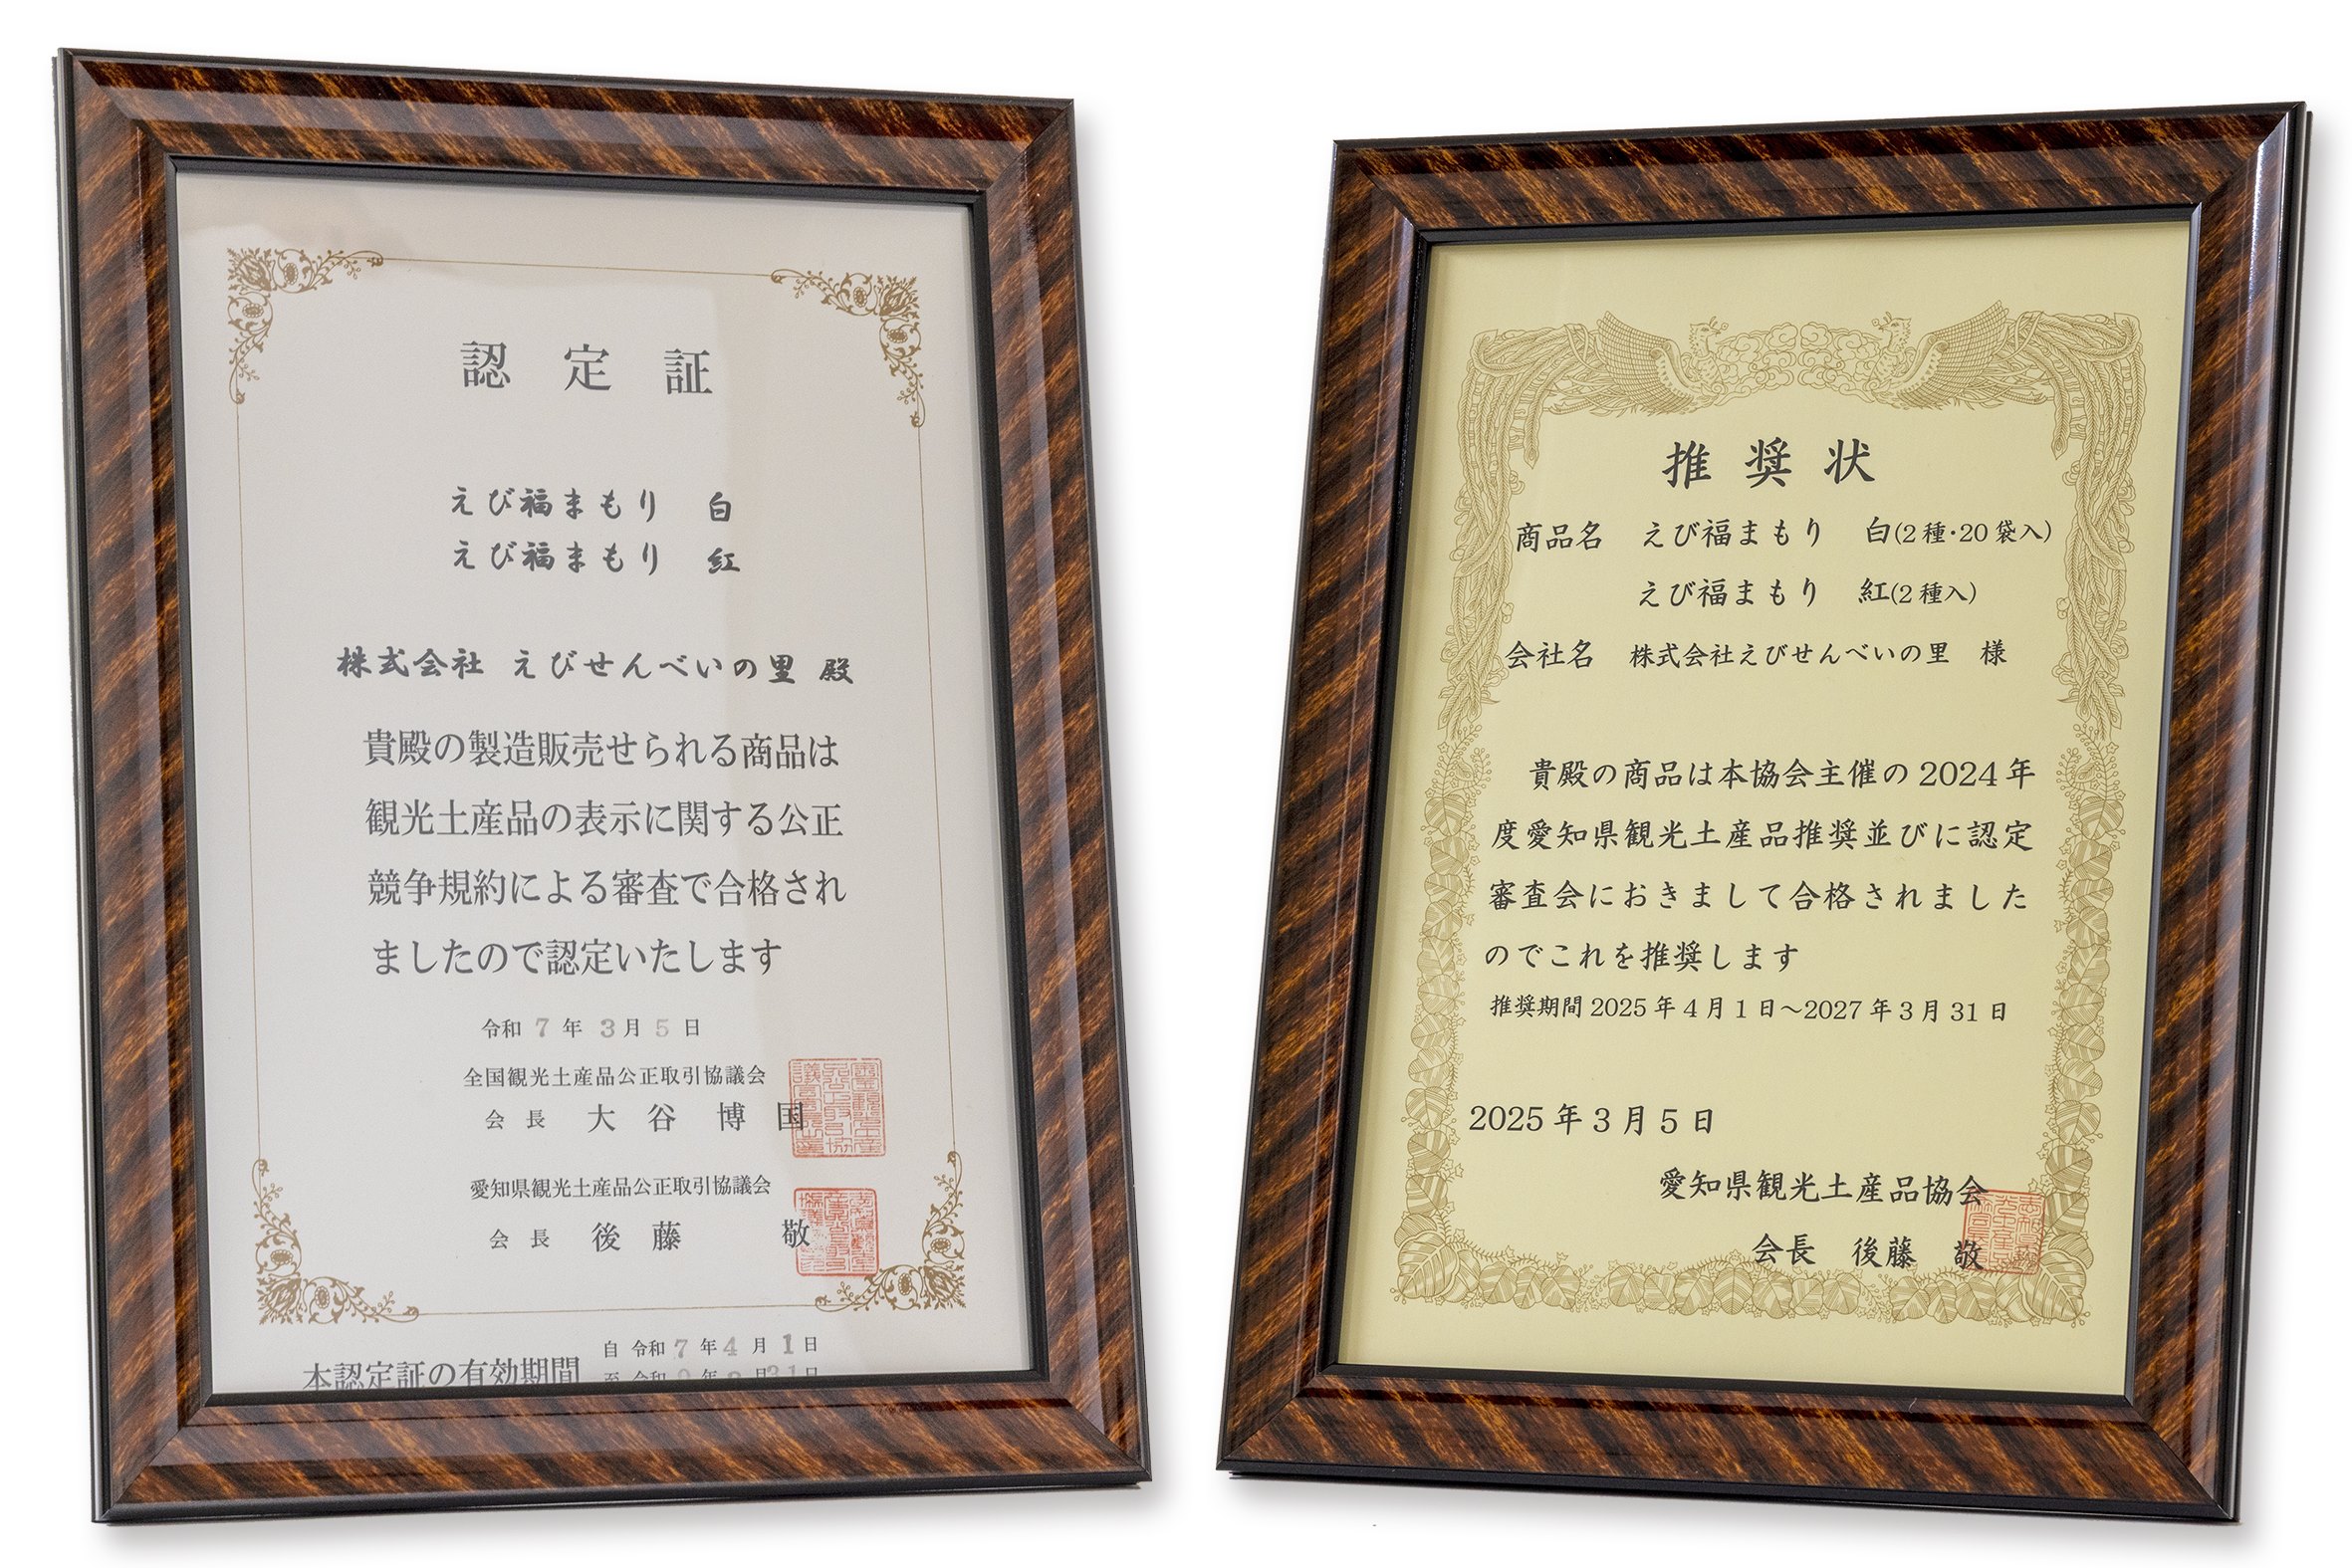 認定証
えび福まもり 白
えび福まもり 紅
株式会社 えびせんべいの里 殿
貴殿の製造販売せられる商品は
観光土産品の表示に関する公正
競争規約による審査で合格され
ましたので認定いたします
令和 7 年 3 月 5 日
全国観光土産品公正取引協議会
会長 大谷 博国
愛知県観光土産品公正取引協議会
会長 後藤 敬
自 令和 7 年 4 月 1 日
本認定証の有効期間
至 令和 年 月 31 日
推奨状
商品名 えび福まもり 白(2種・20袋入)
えび福まもり 紅(2種入)
会社名 株式会社えびせんべいの里 様
貴殿の商品は本協会主催の2024年
度愛知県観光土産品推奨並びに認定
審査会におきまして合格されました
のでこれを推奨します
推奨期間 2025年4月1日～2027年3月31日
2025年3月5日
愛知県観光土産品協会
会長 後藤 敬